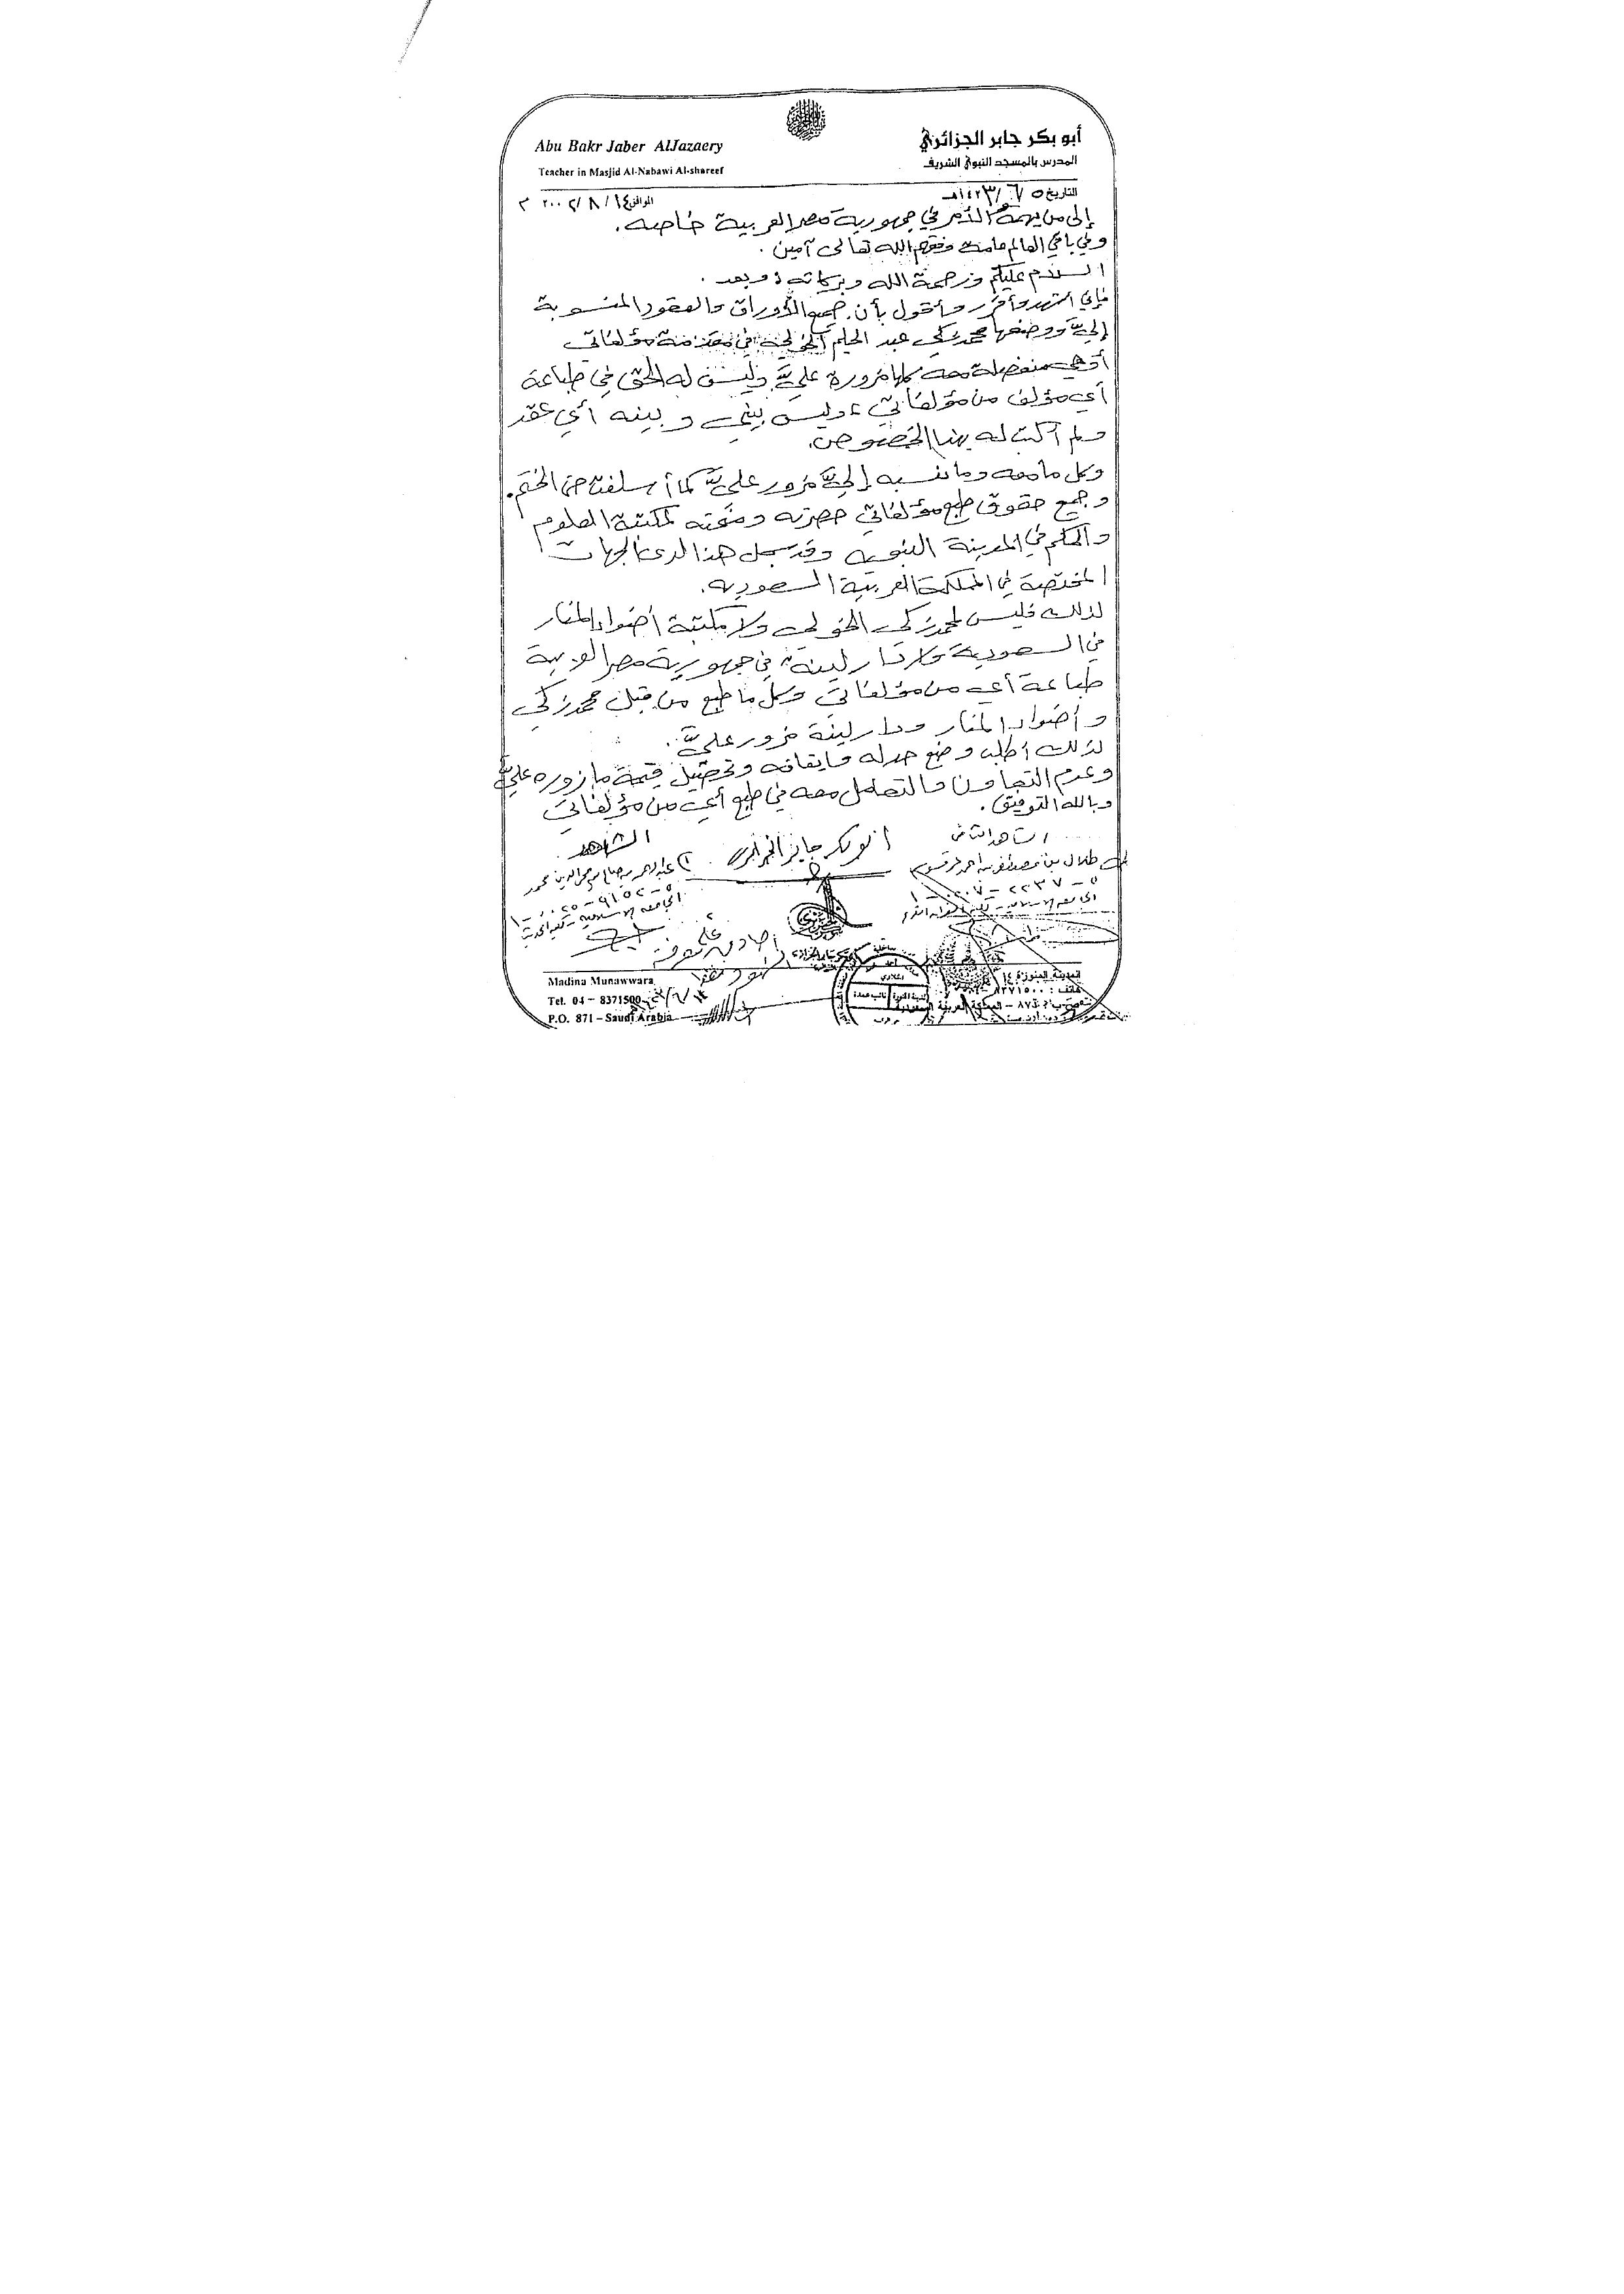 أبو بكر جابر الجزائري
Abu Bakr Jaber AlJazaery
المدرس بالمسجد النبوي الشريف
Teacher in Masjid Al-Nabawi Al-shareef
التاريخ ٥/٦/١٤٢٣هـ
الموافق ١٤/٨/٢٠٠٢م
إلى من يهمه الأمر في جمهورية مصر العربية خاصه.
وفي باقي العالم عامة وفقهم الله تعالى آمين.
السلام عليكم ورحمة الله وبركاته وبعد.
فإني أشهد وأقرر وأقول بأن جميع الأوراق والعقود المنسوبة
إليَّ ووضعها محمد زكي عبد الحليم الخولي في مقدمة مؤلفاتي
أو هي منفصلة معه كلها مزورة عليَّ وليس له الحق في طباعة
أي مؤلف من مؤلفاتي، وليس بيني وبينه أي عقد
ولم أكتب له بهذا الخصوص.
وكل ما معه وما نسبه إليَّ مزور عليَّ كما أسلفت حتى الختم.
وجميع حقوق طبع مؤلفاتي حصرته ومنحته لمكتبة العلوم
والحكم في المدينة النبويه وقد سجل هذا لدى الجهات
المختصة في المملكة العربية السعوديه.
لذلك فليس لمحمد زكي الخولي ولا مكتبة أضواء المنار
في السعودية ولا دار لينة في جمهورية مصر العربية
طباعة أي من مؤلفاتي وكل ما طبع من قبل محمد زكي
وأضواء المنار ودار لينة مزور عليَّ.
لذلك أطلب وضع حد له وإيقافه وتحصيل قيمة ما زوره عليَّ
وعدم التعاون والتعامل معه في طبع أي من مؤلفاتي
وبالله التوفيق.
الشاهد الثاني
أبو بكر جابر الجزائري
الشاهد
طلال بن مصطفى بن احمد
Madina Munawwara
المدينة المنورة
Tel. 04 – 8371500
هاتف : ٨٣٧١٥٠٠
P.O. 871 – Saudi Arabia
ص ب ٨٧١ – المملكة العربية السعودية